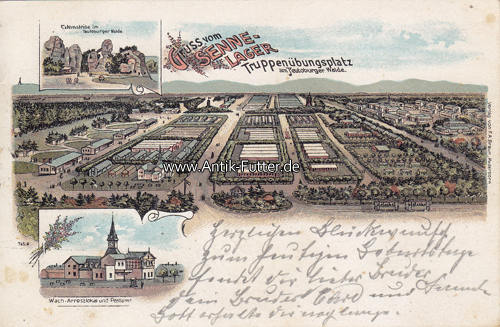 Externsteine im
Teutoburger Walde.
Gruss vom
SENNE-
LAGER
Truppenübungsplatz
am Teutoburger Walde.
www.Antik-Futter.de
Wach-Arrestlokal und
Herzlichen Glückwunsch
zum heutigen Geburtstage
sendet dir lieber Bruder
dein Bruder und
Gott erhalte dich noch lange.